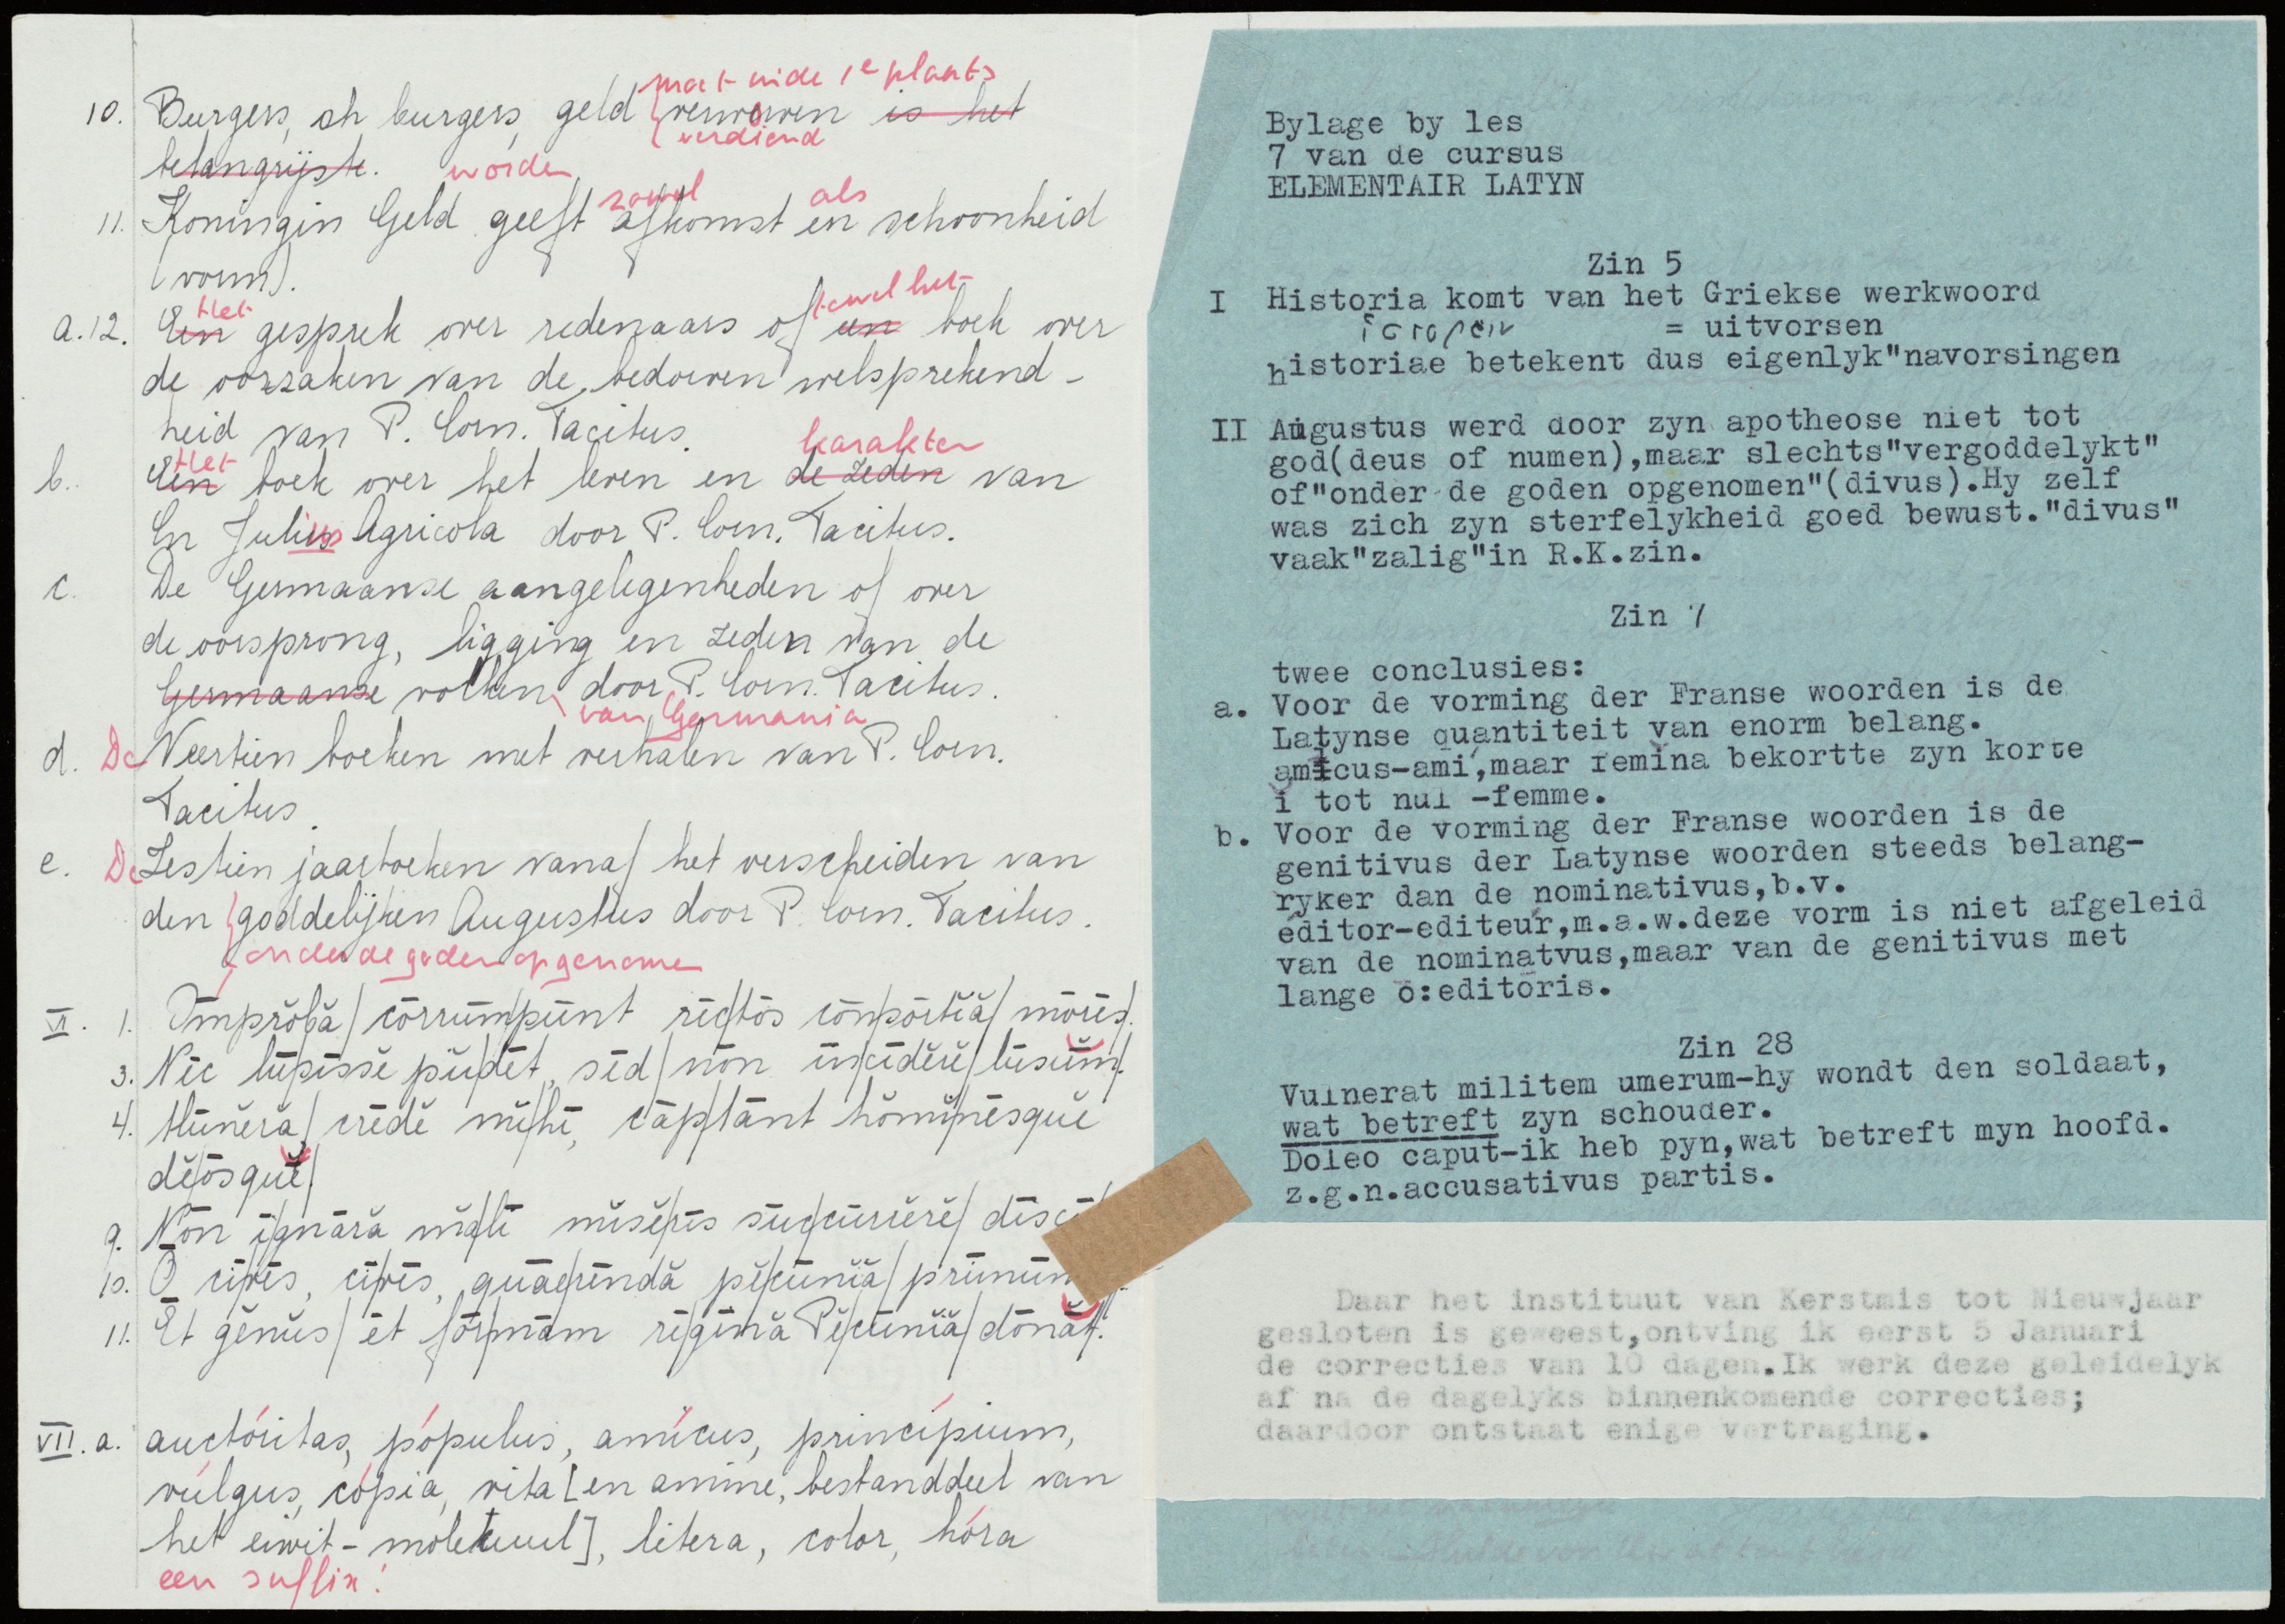 moet in de 1e plaats
10. Burgers, oh burgers, geld verworven is het
verdiend
belangrijkste. worden
zowel als
11. Koningin Geld geeft afkomst en schoonheid
(vorm).
Het towel het
a.12. Een gesprek over redenaars of een boek over
de oorzaken van de bedorven welsprekend-
heid van P. Corn. Tacitus.
Het karakter
b. Een boek over het leven en de zeden van
Cn Julius Agricola door P. Corn. Tacitus.
c. De Germaanse aangelegenheden of over
de oorsprong, ligging en zeden van de
Germaanse volken door P. Corn. Tacitus.
van Germania
d. De Veertien boeken met verhalen van P. Corn.
Tacitus.
e. De Zestien jaarboeken vanaf het verscheiden van
den goddelijken Augustus door P. Corn. Tacitus.
onder de goden opgenomen
VI. 1. Īmprŏbă/ cōrrūmpūnt rēctōs cōnsōrtĭă/ mōrēs.
3. Nēc lūsīssĕ pŭdĕt, sēd/ nōn īncīdĕrĕ/ lūsŭm.
4. Mūnĕră/ crēdĕ mĭhī, cāptānt hŏmĭnēsquĕ
dĕōsquĕ/
9. Nōn īgnāră mălī mĭsĕrīs sūccūrrĕrĕ/
10. Ō cīvēs, cīvēs, quaerēndă pĕcūnĭă/
11. Ēt gĕnŭs/ ēt fōrmām rēgīnă Pĕcūnĭă/ dōnăt.
VII. a. auctóritas, pópulus, amícus, princípium,
vúlgus, cópia, vita [en amine, bestanddeel van
het eiwit-molekuul], litera, color, hóra
een suffix!
Bylage by les
7 van de cursus
ELEMENTAIR LATYN
Zin 5
I Historia komt van het Griekse werkwoord
ἱστορεῖν = uitvorsen
historiae betekent dus eigenlyk"navorsingen
II Augustus werd door zyn apotheose niet tot
god(deus of numen),maar slechts"vergoddelykt"
of"onder de goden opgenomen"(divus).Hy zelf
was zich zyn sterfelykheid goed bewust."divus"
vaak"zalig"in R.K.zin.
Zin 7
twee conclusies:
a. Voor de vorming der Franse woorden is de
Latynse quantiteit van enorm belang.
amīcus-ami,maar femina bekortte zyn korte
ĭ tot nul -femme.
b. Voor de vorming der Franse woorden is de
genitivus der Latynse woorden steeds belang-
ryker dan de nominativus,b.v.
editor-editeur,m.a.w.deze vorm is niet afgeleid
van de nominatvus,maar van de genitivus met
lange o:editōris.
Zin 28
Vulnerat militem umerum-hy wondt den soldaat,
wat betreft zyn schouder.
Doleo caput-ik heb pyn,wat betreft myn hoofd.
z.g.n.accusativus partis.
Daar het instituut van Kerstmis tot Nieuwjaar
gesloten is geweest,ontving ik eerst 5 Januari
de correcties van 10 dagen.Ik werk deze geleidelyk
af na de dagelyks binnenkomende correcties;
daardoor ontstaat enige vertraging.